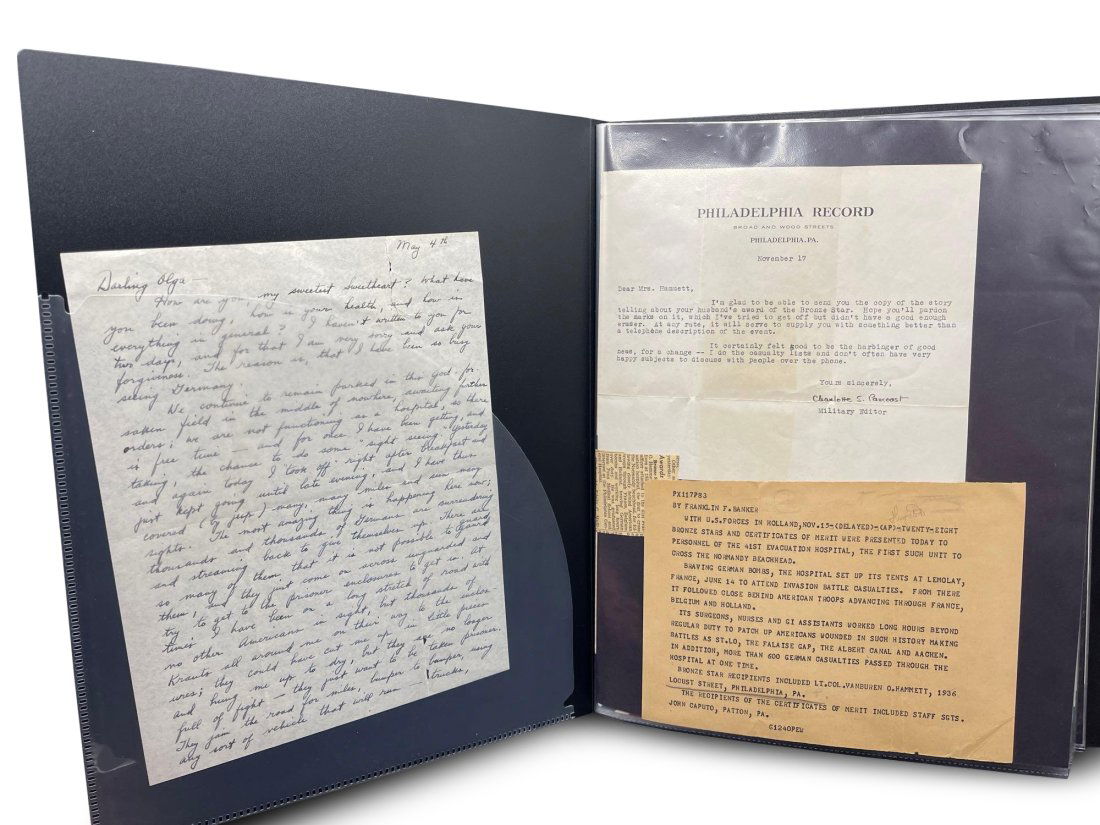 May 4th
Darling Olga—
How are you, my sweetest Sweetheart? What have
you been doing, how is your health, and how is
everything in general? I haven't written to you for
two days, and for that I am very sorry and ask your
forgiveness. The reason is, that I have been so busy
seeing Germany.
We continue to remain parked in this God-for-
saken field in the middle of nowhere, awaiting further
orders; we are not functioning as a hospital, so there
is free time — and for once I have been getting, and
taking, the chance to do some "sight seeing." Yesterday
and again today I took off right after breakfast and
just kept going until late evening, and I have thus
covered (by jeep) many, many miles and seen many
sights. The most amazing thing is happening here now;
thousands and thousands of Germans are surrendering
and streaming back to give themselves up. There are
so many of them that it is not possible to guard
them, and they just come on across unguarded and
try to get to the prisoner enclosures to get in. At
times I have been on a long stretch of road with
no other Americans in sight, but thousands of
Krauts all around me on their way to the inclos-
ures; they could have cut me up in little pieces
and hung me up to dry, but they are no longer
full of fight — they just want to be taken prisoner.
They jam the road for miles, bumper to bumper, using
any sort of vehicle that will run — trucks,
PHILADELPHIA RECORD
BROAD AND WOOD STREETS
PHILADELPHIA, PA.
November 17
Dear Mrs. Hammett,
I'm glad to be able to send you the copy of the story
telling about your husband's award of the Bronze Star. Hope you'll pardon
the marks on it, which I've tried to get off but didn't have a good enough
eraser. At any rate, it will serve to supply you with something better than
a telephone description of the event.
It certainly felt good to be the harbinger of good
news, for a change -- I do the casualty lists and don't often have very
happy subjects to discuss with people over the phone.
Yours sincerely,
Charlotte E. Pancoast
Military Editor
Awards
PX117PB3
BY FRANKLIN F. BANKER
WITH U.S. FORCES IN HOLLAND, NOV. 15-(DELAYED)-(AP)-TWENTY-EIGHT
BRONZE STARS AND CERTIFICATES OF MERIT WERE PRESENTED TODAY TO
PERSONNEL OF THE 41ST EVACUATION HOSPITAL, THE FIRST SUCH UNIT TO
CROSS THE NORMANDY BEACHHEAD.
BRAVING GERMAN BOMBS, THE HOSPITAL SET UP ITS TENTS AT LEMOLAY,
FRANCE, JUNE 14 TO ATTEND INVASION BATTLE CASUALTIES. FROM THERE
IT FOLLOWED CLOSE BEHIND AMERICAN TROOPS ADVANCING THROUGH FRANCE,
BELGIUM AND HOLLAND.
ITS SURGEONS, NURSES AND GI ASSISTANTS WORKED LONG HOURS BEYOND
REGULAR DUTY TO PATCH UP AMERICANS WOUNDED IN SUCH HISTORY MAKING
BATTLES AS ST.LO, THE FALAISE GAP, THE ALBERT CANAL AND AACHEN.
IN ADDITION, MORE THAN 600 GERMAN CASUALTIES PASSED THROUGH THE
HOSPITAL AT ONE TIME.
BRONZE STAR RECIPIENTS INCLUDED LT.COL.VANBUREN O.HAMMETT, 1936
LOCUST STREET, PHILADELPHIA, PA.
THE RECIPIENTS OF THE CERTIFICATES OF MERIT INCLUDED STAFF SGTS.
JOHN CAPUTO, PATTON, PA.
G1240PEW